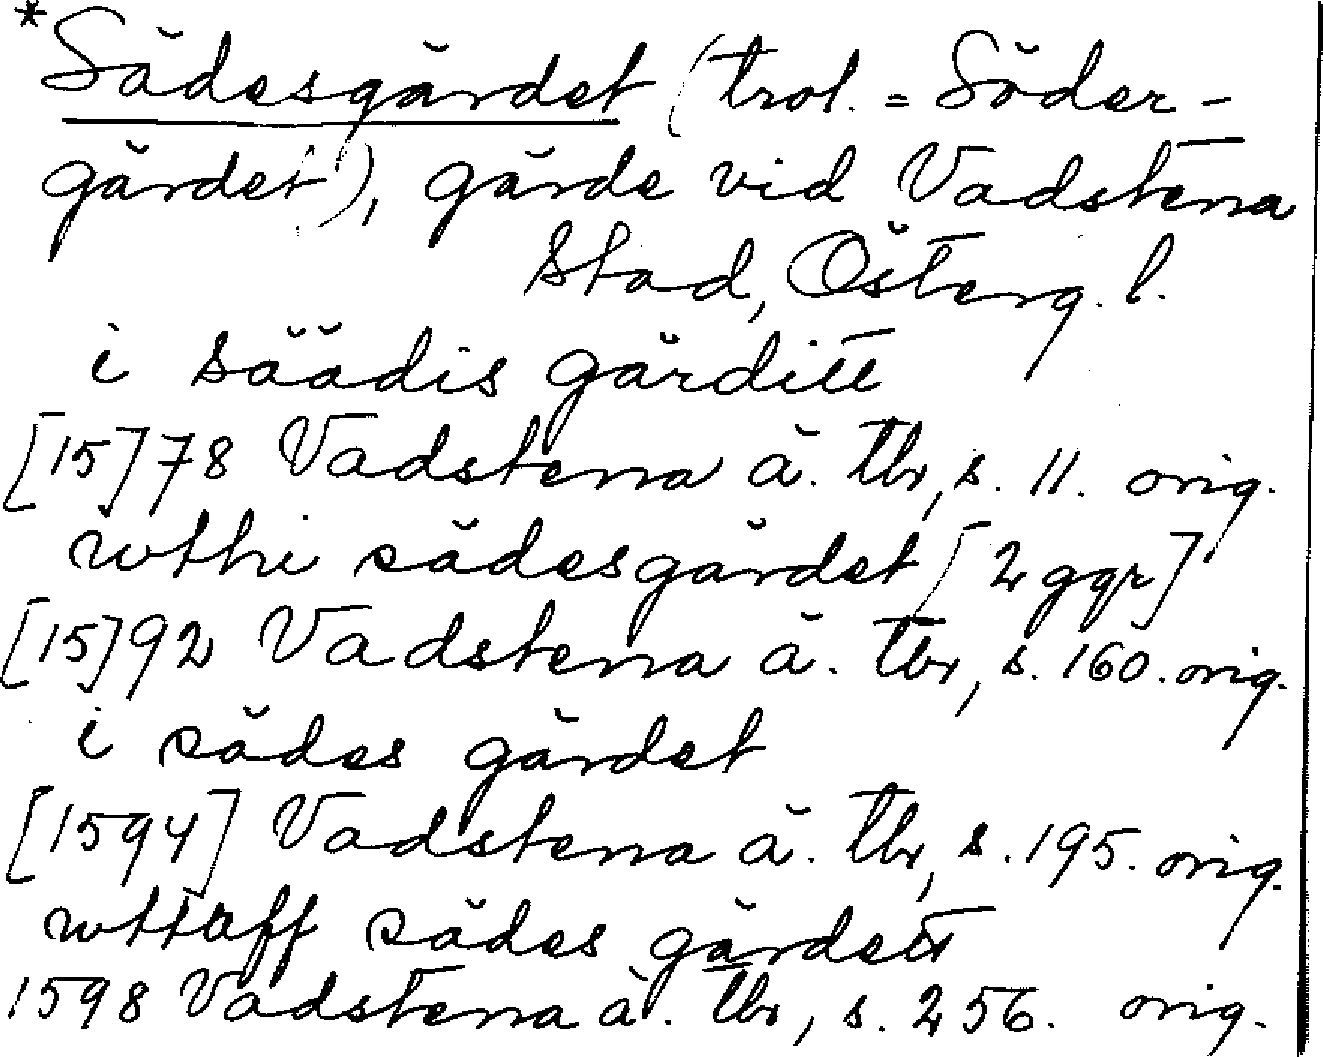 *Sädesgärdet (trol. = Söder-
gärdet), gärde vid Vadstena
stad, Österg. l.
i säädis gärditt
[15]78 Vadstena ä. tb, s. 11. orig.
wthi sädesgärdet [2 ggr]
[15]92 Vadstena ä. tb, s. 160. orig.
i sädes gärdet
[1594] Vadstena ä. tb, s. 195. orig.
wttaff sädes gärdett
1598 Vadstena ä. tb, s. 256. orig.